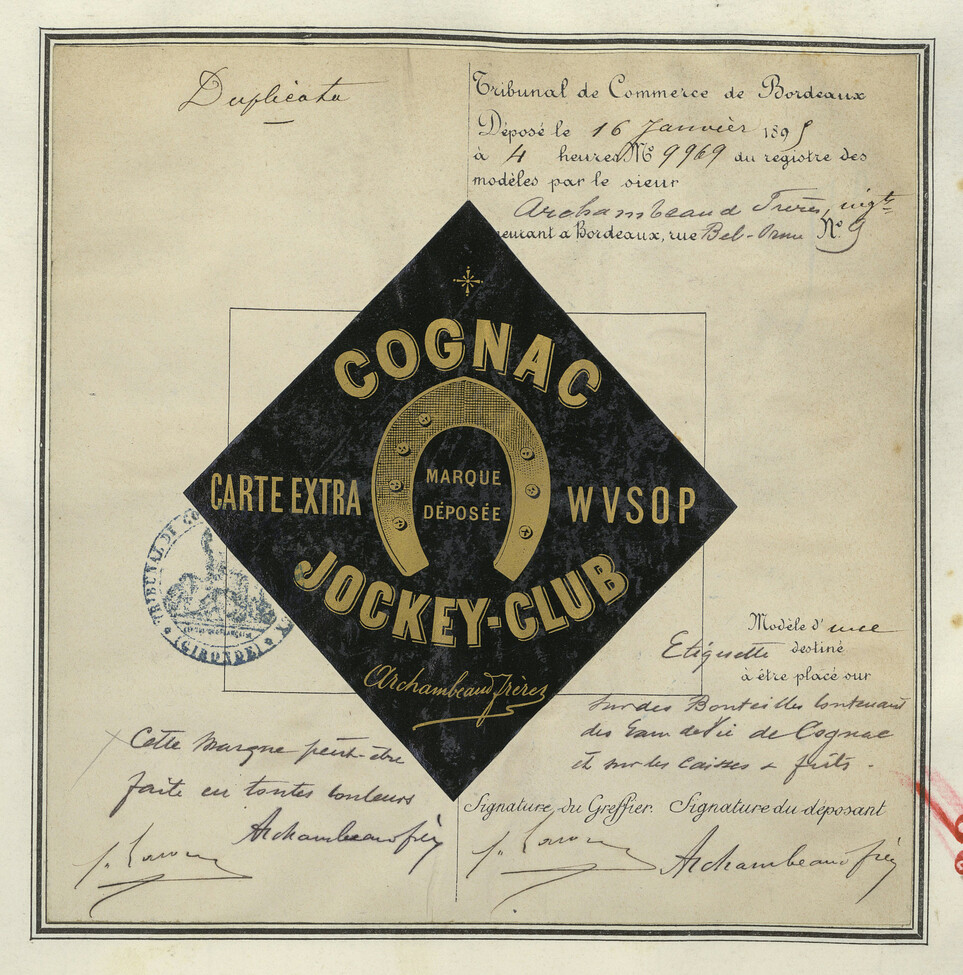 Duplicata
Tribunal de Commerce de Bordeaux
Déposé le 16 Janvier 1895
à 4 heures Nº 9969 du registre des
modèles par le sieur
Archambeaud Frères, négts
eurant à Bordeaux, rue Bel-Orme Nº 9
COGNAC
CARTE EXTRA
MARQUE
DÉPOSÉE
WVSOP
JOCKEY-CLUB
Archambeaud frères
TRIBUNAL DE CO
(GIRONDE)
Modèle d'une
Etiquette destiné
à être placé sur
sur des Bouteilles contenant
des Eaux de Vie de Cognac
et sur les caisses & fûts.
Cette marque peut-être
faite en toutes couleurs
Archambeaud frès
Signature du Greffier. Signature du déposant
Archambeaud frès